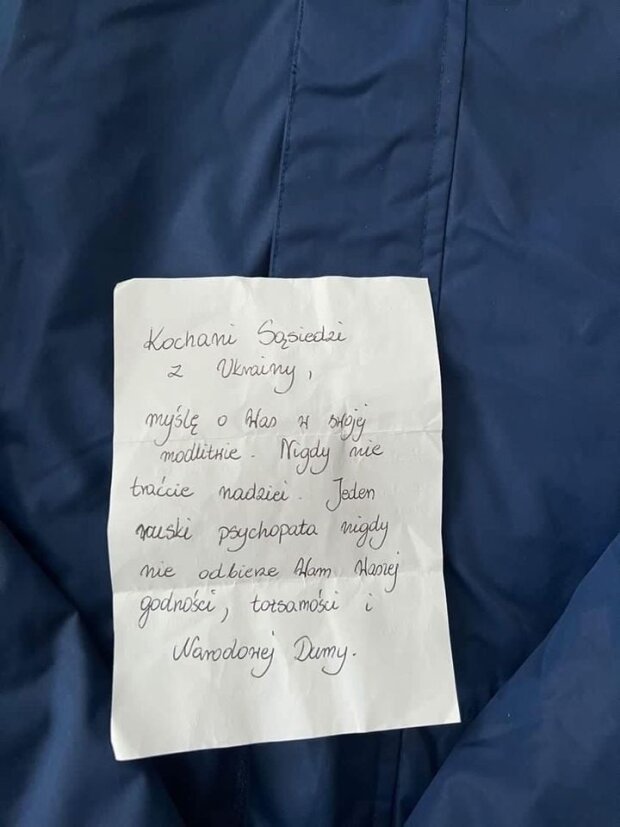 Kochani Sąsiedzi
z Ukrainy,
myślę o Was w swojej
modlitwie. Nigdy nie
traćcie nadziei. Jeden
ruski psychopata nigdy
nie odbierze Wam Waszej
godności, tożsamości i
Narodowej Dumy.